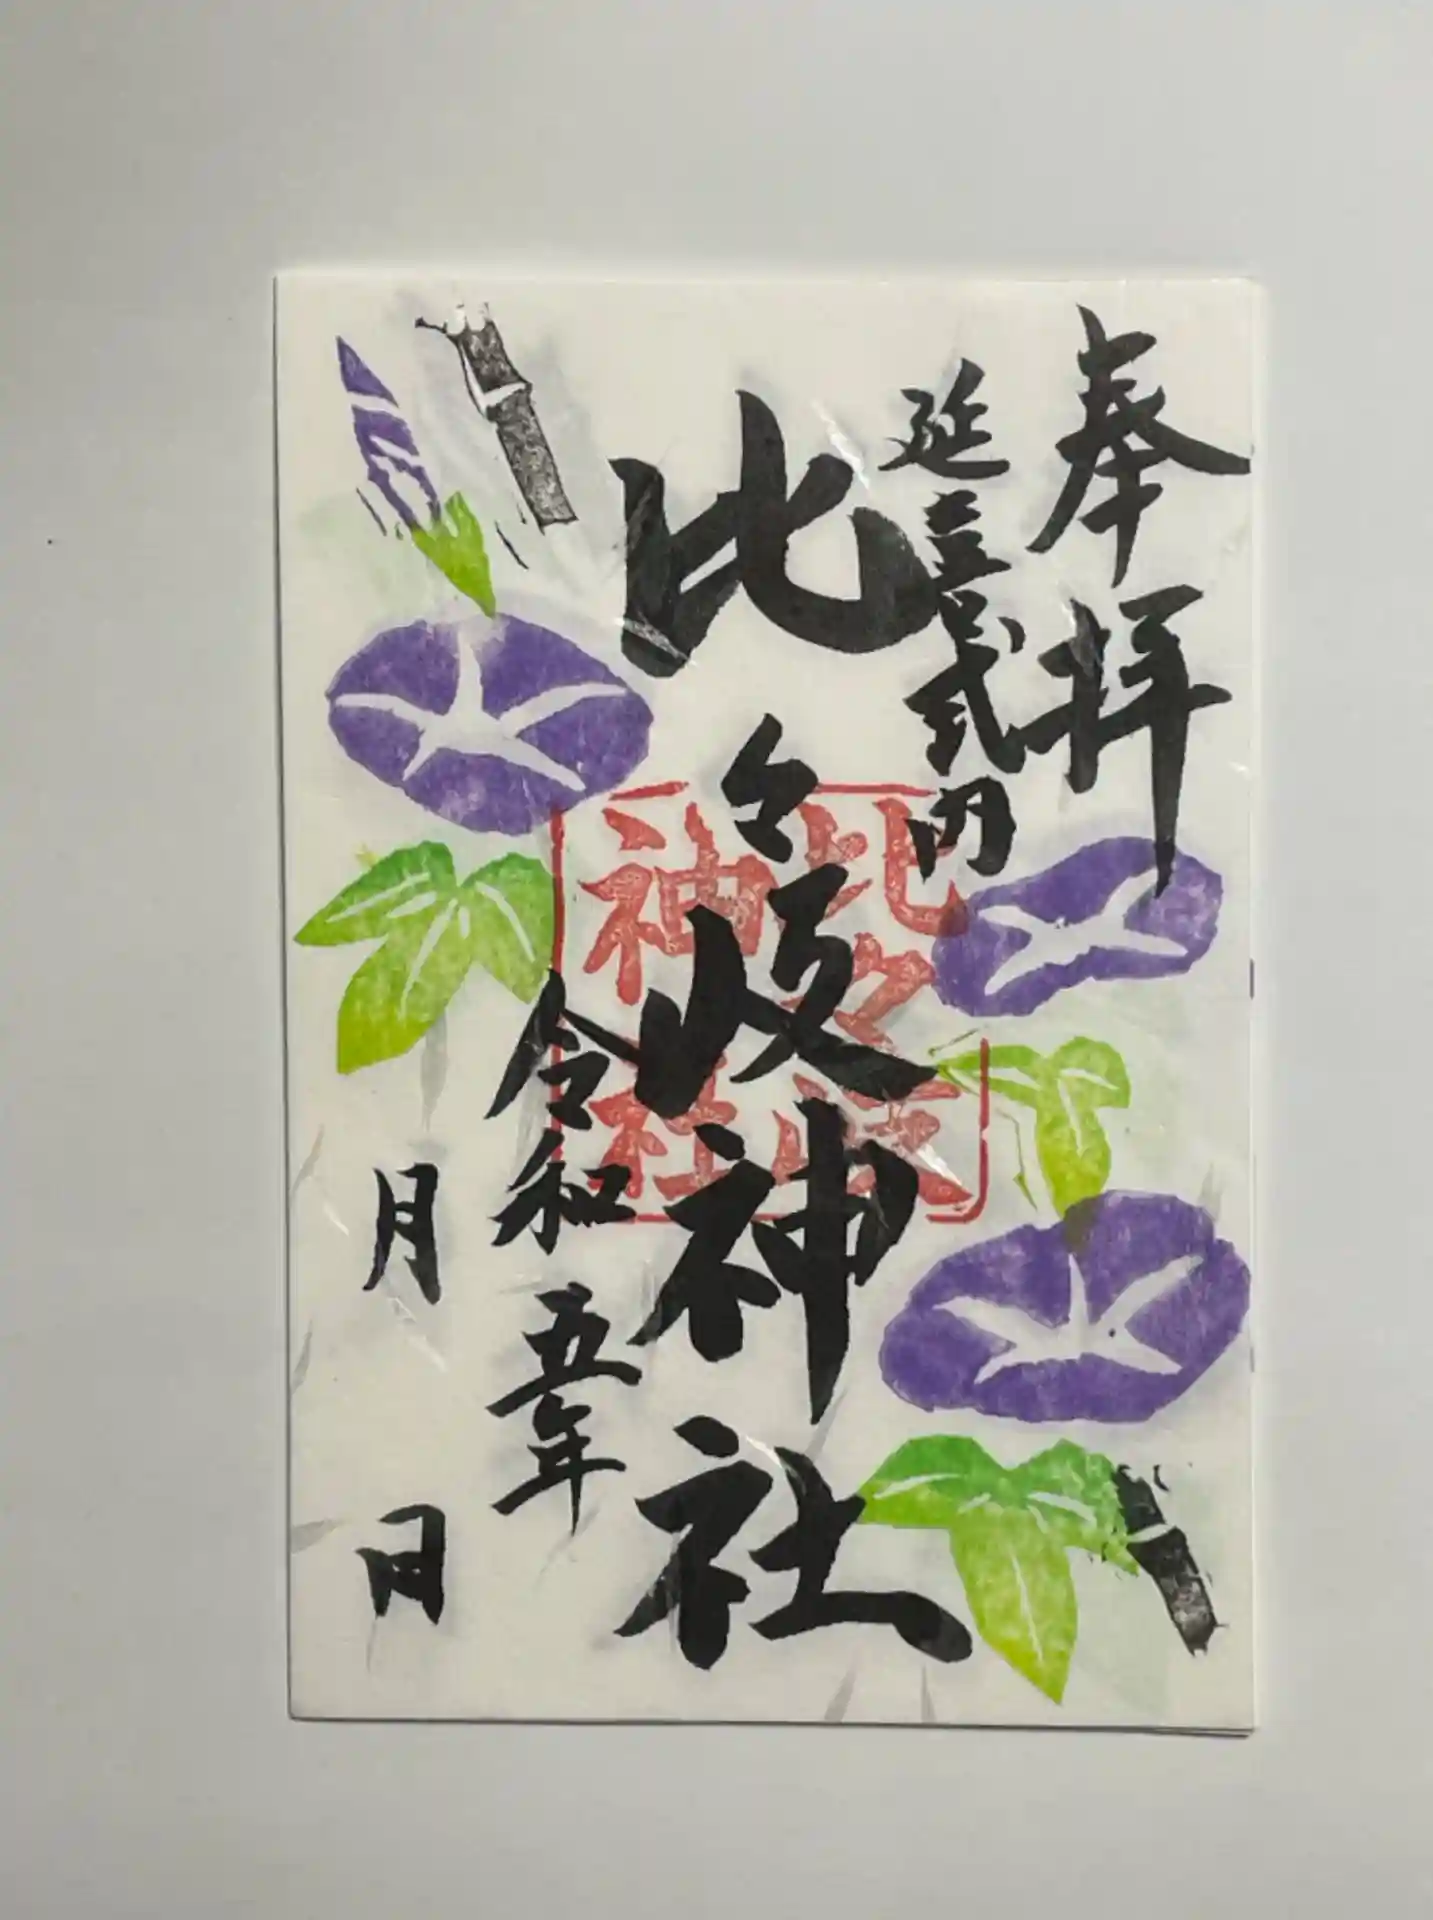 奉拝
延喜式内
比々岐神社
比々岐
神社
令和五年
月 日